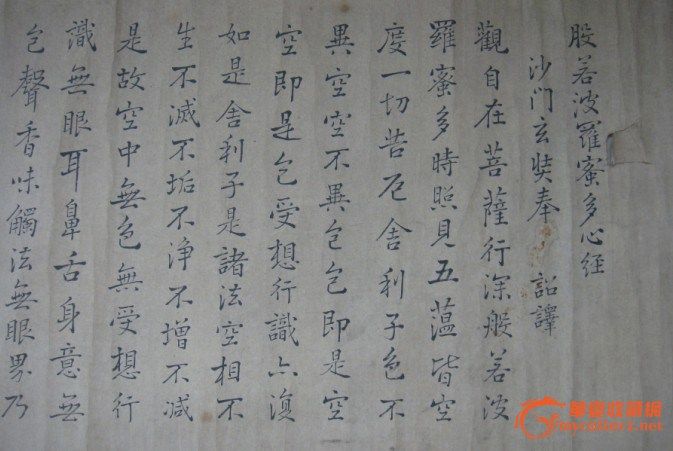 般若波羅蜜多心経
沙门玄奘奉 詔譯
觀自在菩薩行深般若波
羅蜜多時照見五蕰皆空
度一切苦厄舍利子色不
異空空不異色色即是空
空即是色受想行識亦復
如是舍利子是諸法空相不
生不滅不垢不浄不增不减
是故空中無色無受想行
識無眼耳鼻舌身意無
色聲香味觸法無眼界乃
華夏收藏網